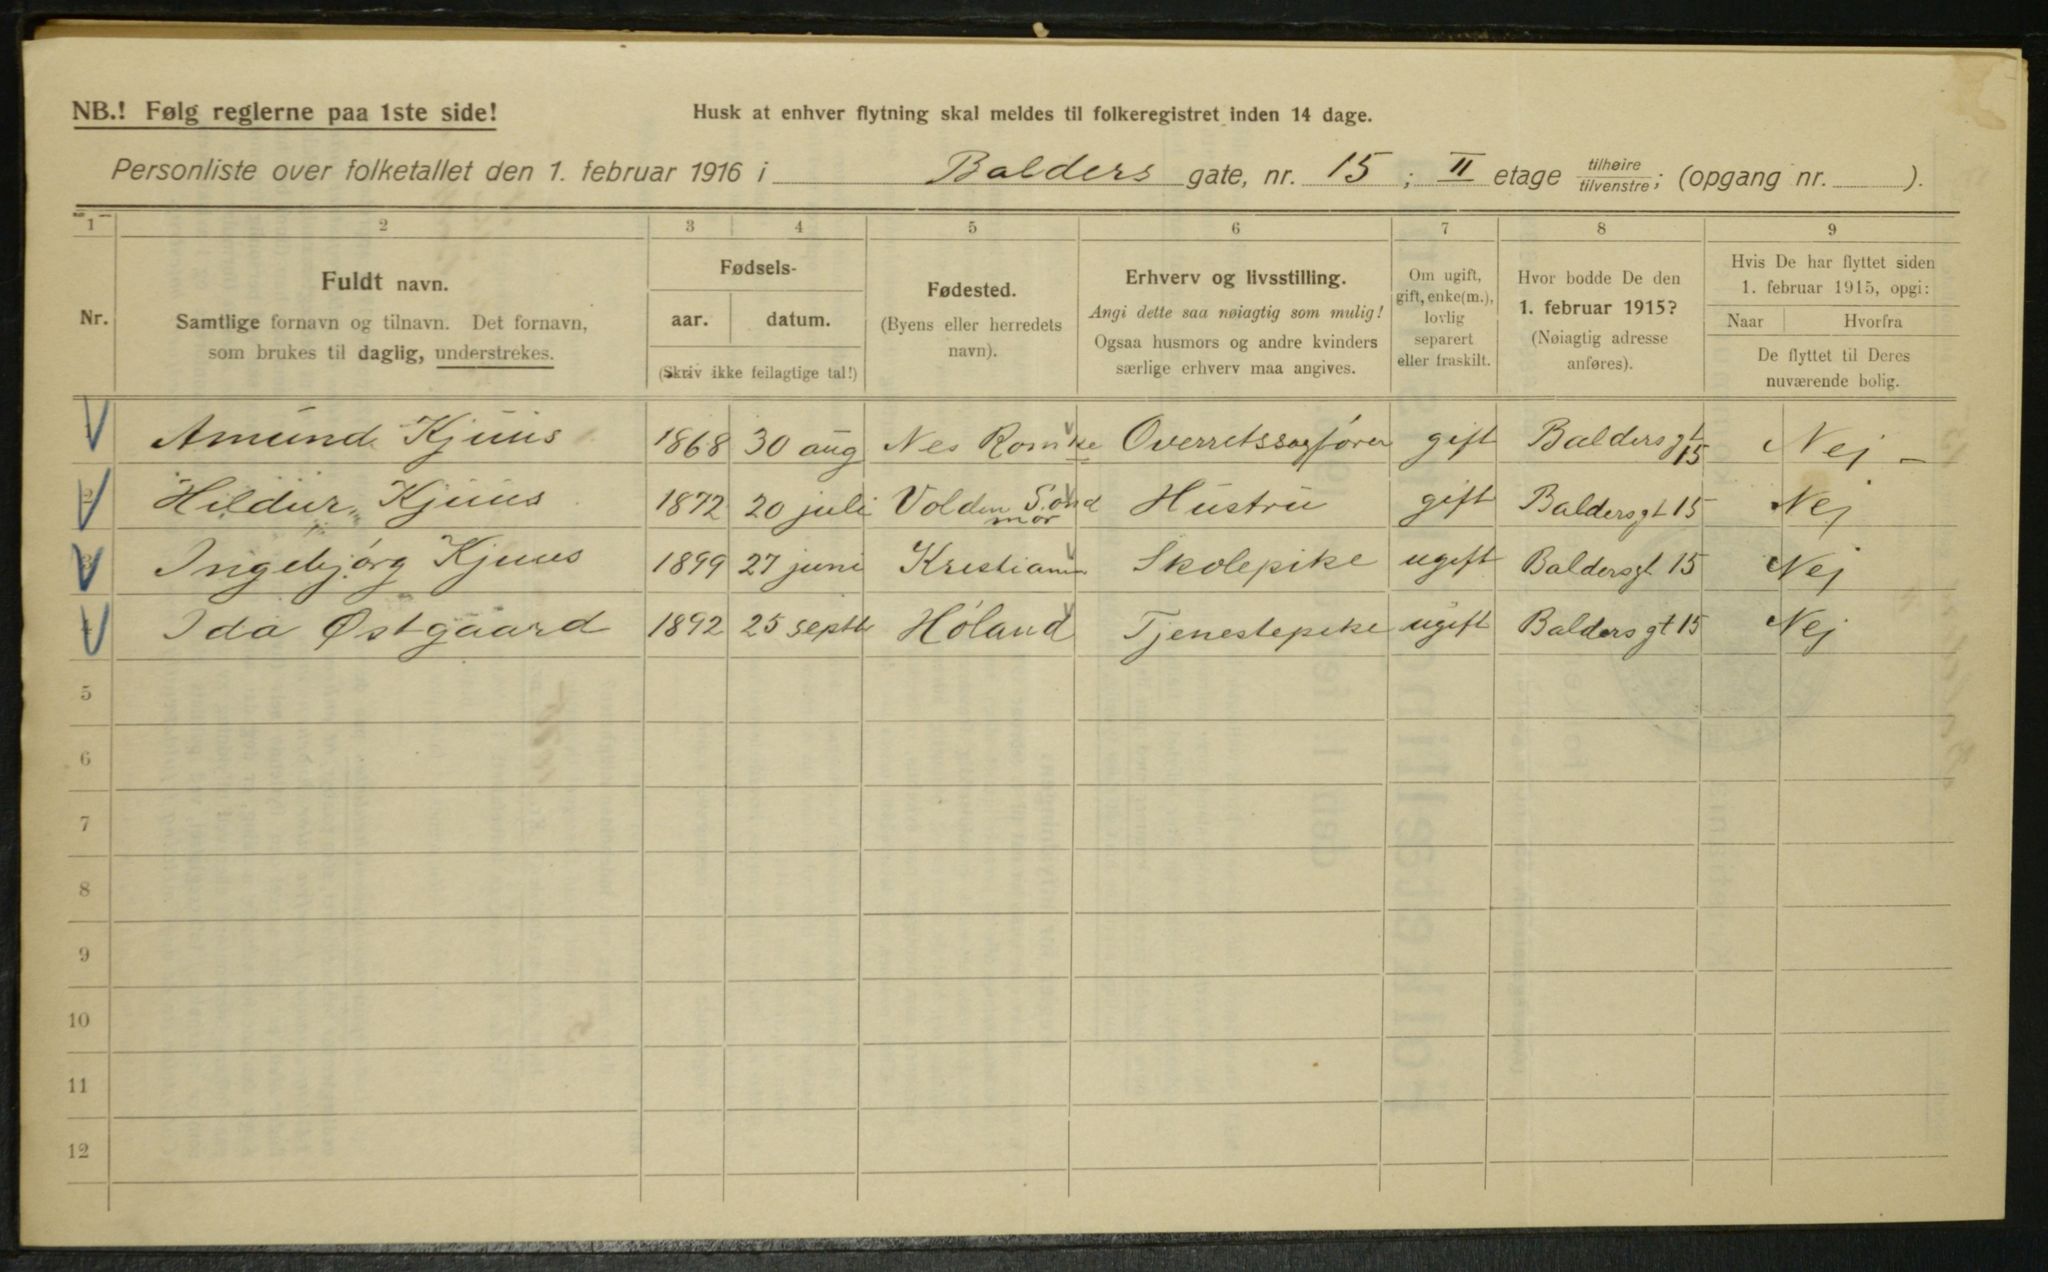 NB.! Følg reglerne paa 1ste side!
Husk at enhver flytning skal meldes til folkeregistret inden 14 dage.
Personliste over folketallet den 1. februar 1916 i Balders gate, nr. 15; II etage tilhøire/tilvenstre; (opgang nr. ).
1 2 3 4 5 6 7 8 9
Nr.
Fuldt navn.
Samtlige fornavn og tilnavn. Det fornavn,
som brukes til daglig, understrekes.
Fødsels-
aar. datum.
(Skriv ikke feilagtige tal!)
Fødested.
(Byens eller herredets
navn).
Erhverv og livsstilling.
Angi dette saa nøiagtig som mulig!
Ogsaa husmors og andre kvinders
særlige erhverv maa angives.
Om ugift,
gift, enke(m.),
lovlig
separert
eller fraskilt.
Hvor bodde De den
1. februar 1915?
(Nøiagtig adresse
anføres).
Hvis De har flyttet siden
1. februar 1915, opgi:
Naar Hvorfra
De flyttet til Deres
nuværende bolig.
1 Amund Kjuus 1868 30 aug Nes Romke Overretssagfører gift Baldersgt 15 Nej –
2 Hildur Kjuus 1872 20 juli Volden Sond mør Hustru gift Baldersgt 15 Nej
3 Ingebjørg Kjuus 1899 27 juni Kristiania Skolepike ugift Baldersgt 15 Nej
4 Ida Østgaard 1892 25 septb Høland Tjenestepike ugift Baldersgt 15 Nej
5
6
7
8
9
10
11
12